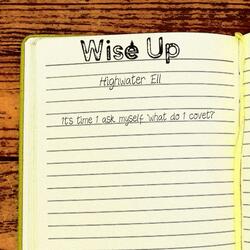 Wise Up
Highwater Ell
It's time I ask myself 'what do I covet?'